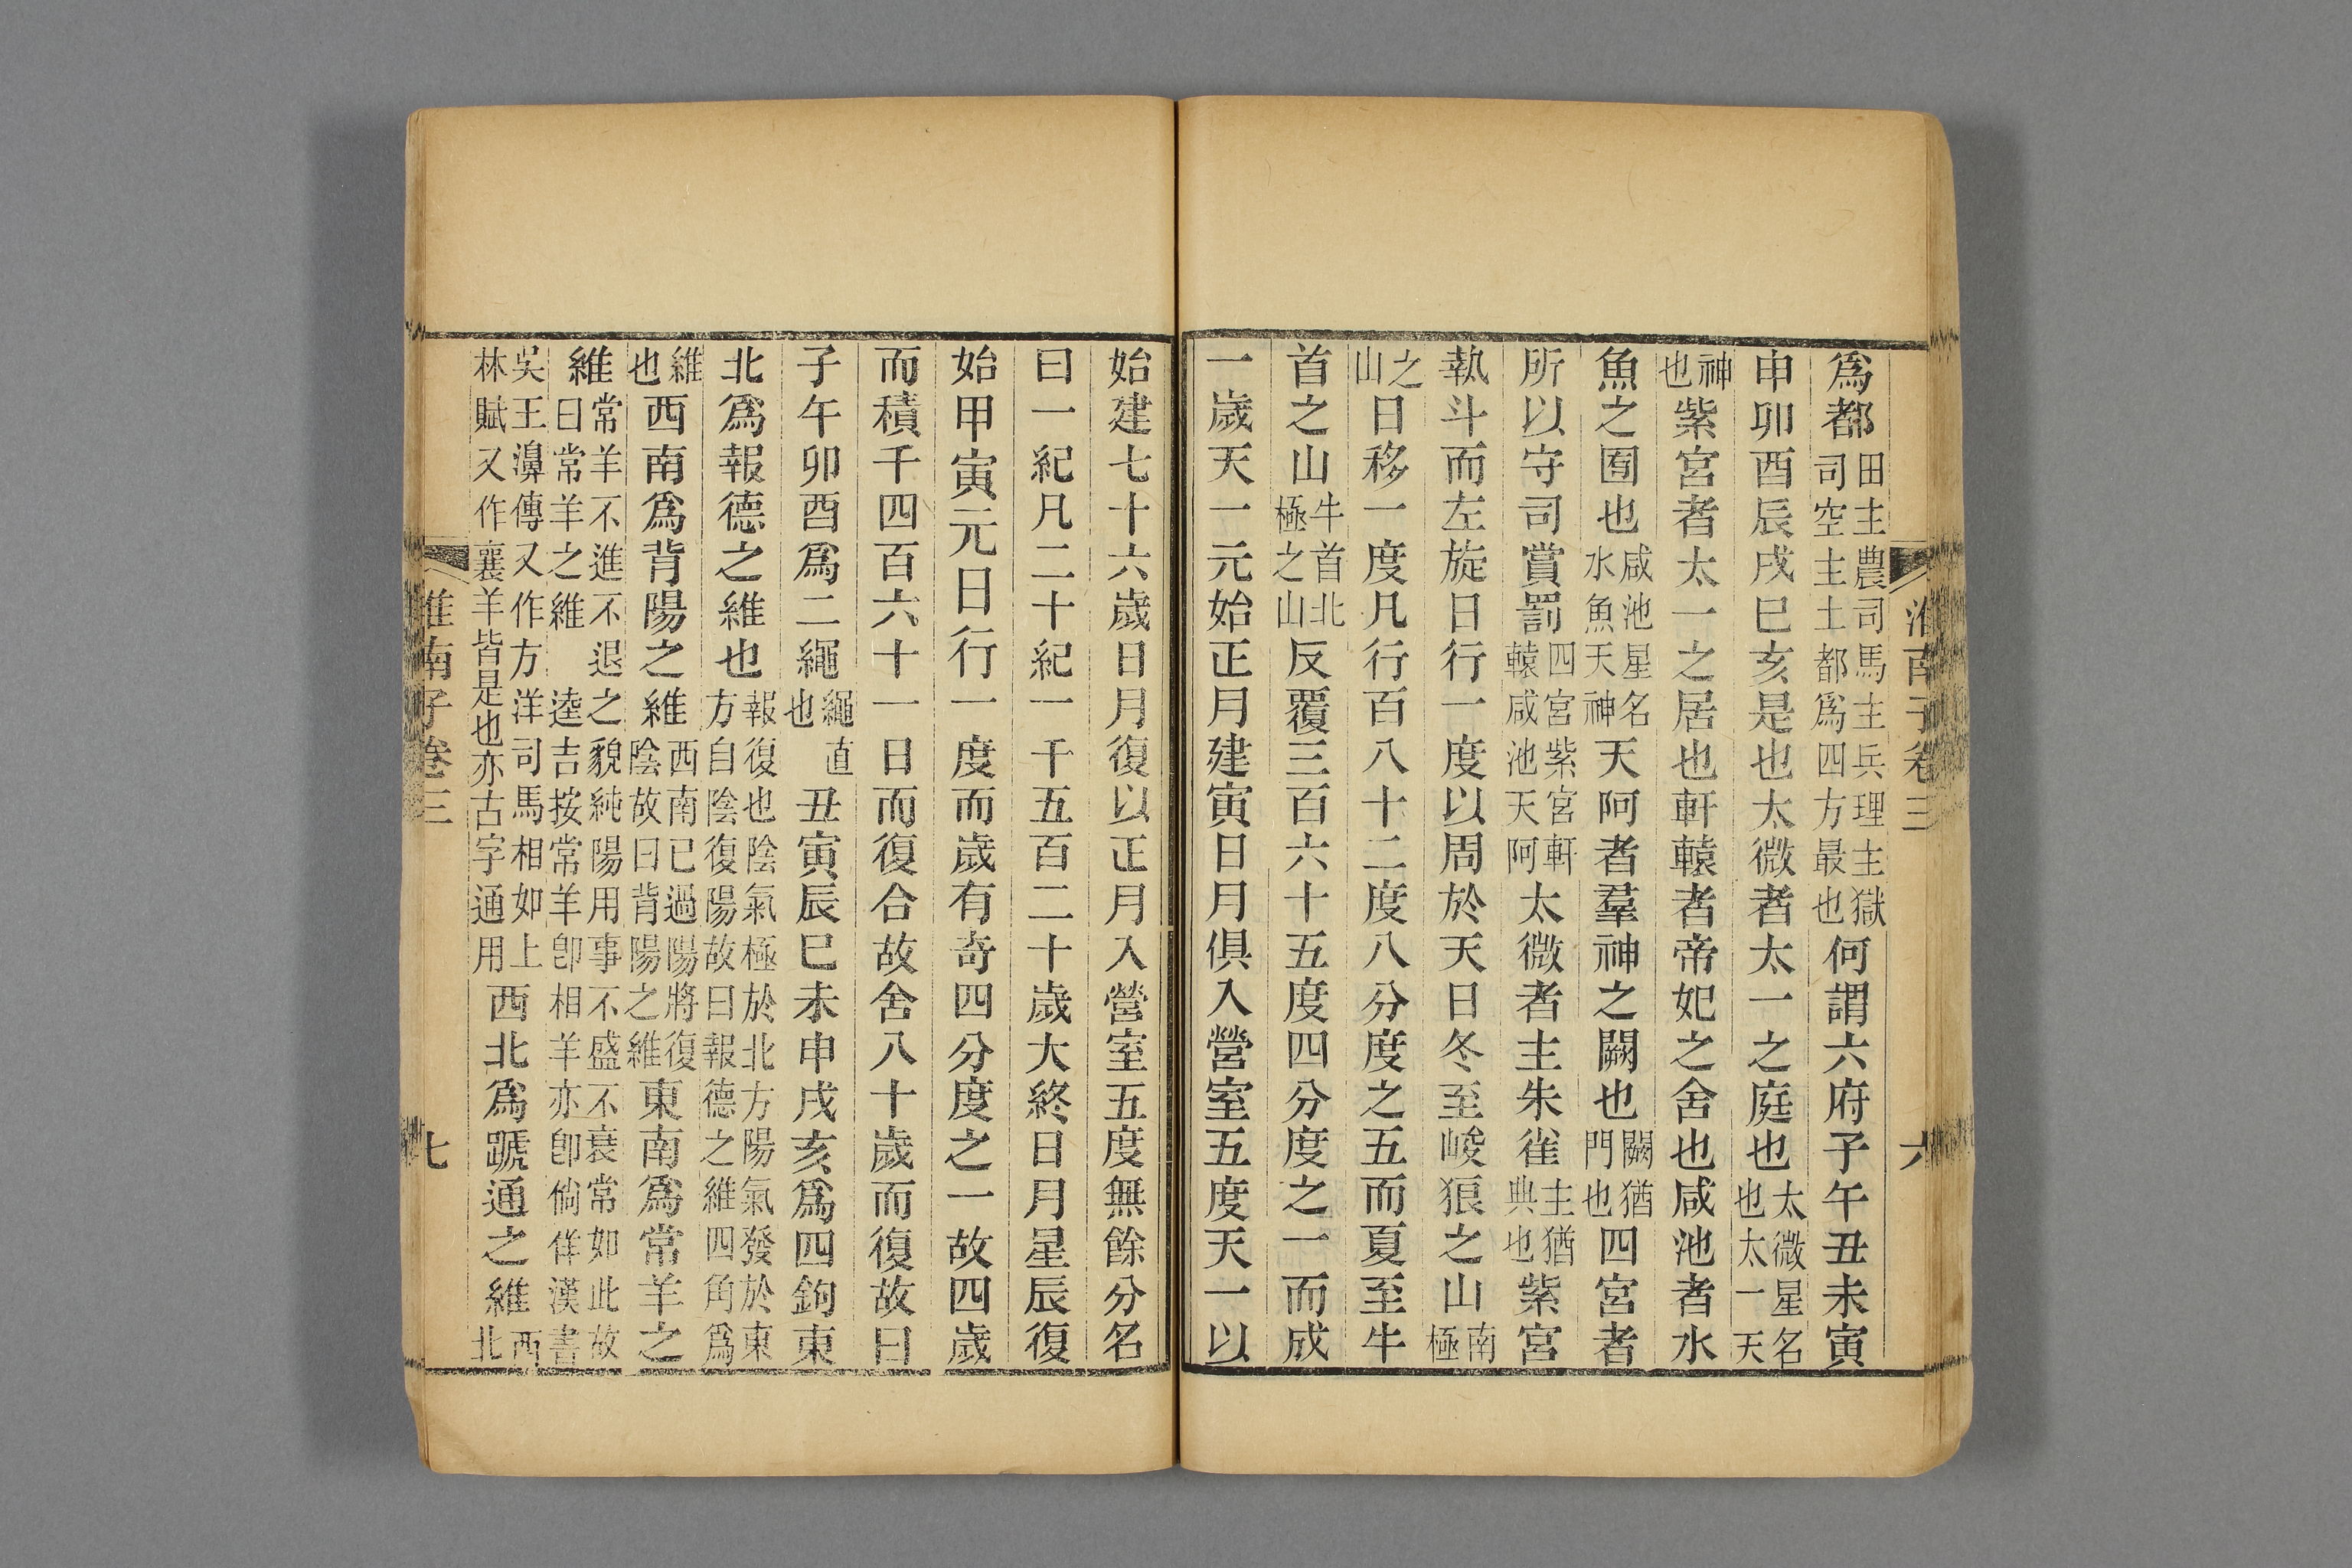 爲都田主農司馬主兵理主獄司空主土都爲四方最也何謂六府子午丑未寅
申卯酉辰戌巳亥是也太微者太一之庭也太微星名也太一天
神也紫宮者太一之居也軒轅者帝妃之舍也咸池者水
魚之囿也咸池星名水魚天神天阿者羣神之闕也闕猶門也四宮者
所以守司賞罰四宮紫宮軒轅咸池天阿太微者主朱雀主猶典也紫宮
執斗而左旋日行一度以周於天日冬至峻狼之山南極
之山日移一度凡行百八十二度八分度之五而夏至牛
首之山牛首北極之山反覆三百六十五度四分度之一而成
一歲天一元始正月建寅日月俱入營室五度天一以
始建七十六歲日月復以正月入營室五度無餘分名
曰一紀凡二十紀一千五百二十歲大終日月星辰復
始甲寅元日行一度而歲有奇四分度之一故四歲
而積千四百六十一日而復合故舍八十歲而復故曰
子午卯酉爲二繩繩直也丑寅辰巳未申戌亥爲四鉤東
北爲報德之維也報復也陰氣極於北方陽氣發於東方自陰復陽故曰報德之維四角爲
維也西南爲背陽之維西南已過陽將復陰故曰背陽之維東南爲常羊之
維常羊不進不退之貌純陽用事不盛不衰常如此故曰常羊之維逵吉按常羊卽相羊亦卽倘佯漢書
吳王濞傳又作方洋司馬相如上林賦又作襄羊皆是也亦古字通用西北爲蹏通之維西北
淮南子卷三
六
淮南子卷三
七